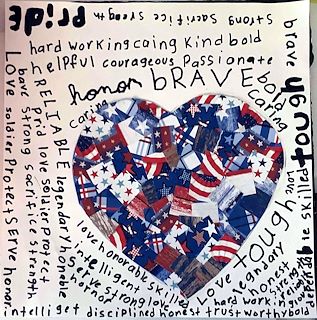 PRiDE
Strong Sacrifice Strength
hard working caing Kind bold
helpful courageous Passionate
honor bRAVE bold
caring
caring
brave tough
tough
skilled
RELIABLE legendary honable
Prid love soldier Protect
bave Strong sacrifice strength
Love soldier Protect SErve honor
love honorable skilled
intelligent
Serve Strong love
honor
Love tough
legndary
Love
hard working
honest
strong
intelliget disciplined honest trustworthy bold